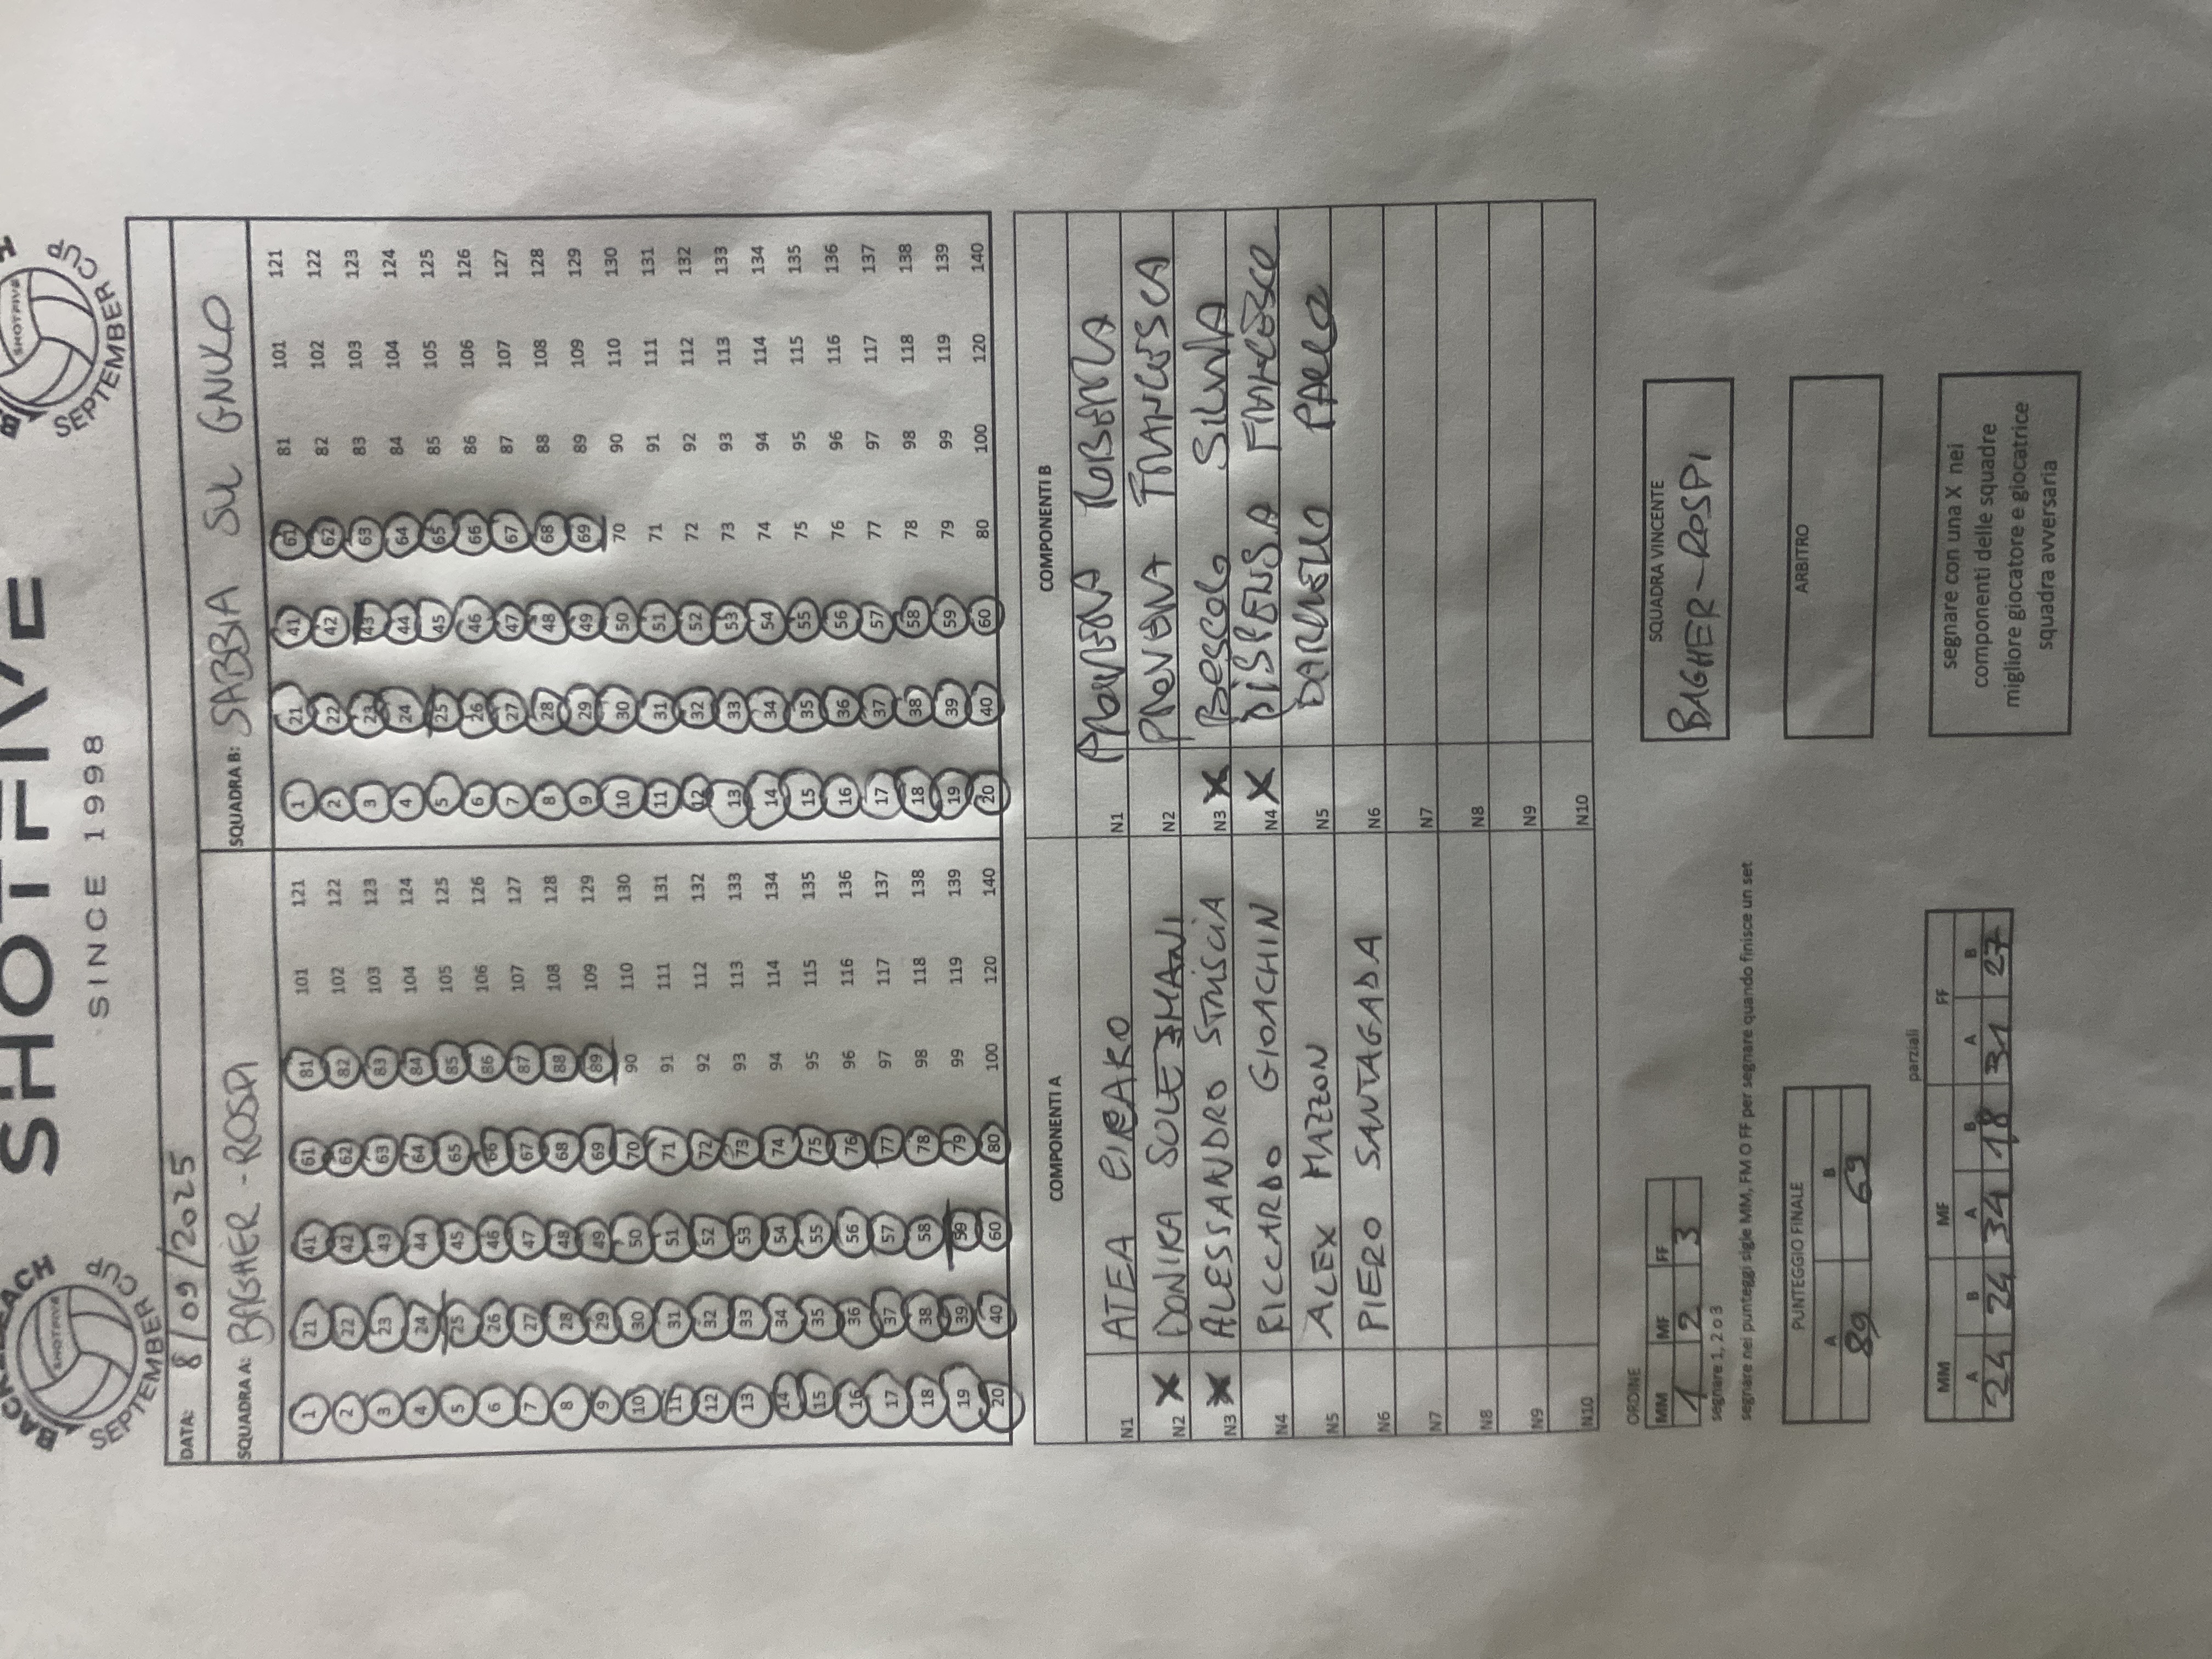 SHOTFIVE
SINCE 1998
SHOTFIVE
SEPTEMBER CUP
SHOTFIVE
SEPTEMBER CUP
DATA: 8/09/2025
SQUADRA A: BAGHER-ROSPI
SQUADRA B: SABBIA SUL GNULO
1 21 41 61 81 101 121 1 21 41 61 81 101 121
2 22 42 62 82 102 122 2 22 42 62 82 102 122
3 23 43 63 83 103 123 3 23 43 63 83 103 123
4 24 44 64 84 104 124 4 24 44 64 84 104 124
5 25 45 65 85 105 125 5 25 45 65 85 105 125
6 26 46 66 86 106 126 6 26 46 66 86 106 126
7 27 47 67 87 107 127 7 27 47 67 87 107 127
8 28 48 68 88 108 128 8 28 48 68 88 108 128
9 29 49 69 89 109 129 9 29 49 69 89 109 129
10 30 50 70 90 110 130 10 30 50 70 90 110 130
11 31 51 71 91 111 131 11 31 51 71 91 111 131
12 32 52 72 92 112 132 12 32 52 72 92 112 132
13 33 53 73 93 113 133 13 33 53 73 93 113 133
14 34 54 74 94 114 134 14 34 54 74 94 114 134
15 35 55 75 95 115 135 15 35 55 75 95 115 135
16 36 56 76 96 116 136 16 36 56 76 96 116 136
17 37 57 77 97 117 137 17 37 57 77 97 117 137
18 38 58 78 98 118 138 18 38 58 78 98 118 138
19 39 59 79 99 119 139 19 39 59 79 99 119 139
20 40 60 80 100 120 140 20 40 60 80 100 120 140
COMPONENTI A COMPONENTI B
N1 ATEA N1 ROBERTA
N2 X DONIKA SOLEJMANI N2 FRANCESCA
N3 X ALESSANDRO STRISCIA N3 X BESCOLO SILVIA
N4 RICCARDO GIOACHIN N4 X DISPENSA FRANCESCO
N5 ALEX MAZZON N5 PAOLO
N6 PIERO SANTAGADA N6
N7 N7
N8 N8
N9 N9
N10 N10
ORDINE
MM MF FF
1 2 3
segnare 1, 2 o 3
segnare nei punteggi sigle MM, FM O FF per segnare quando finisce un set
SQUADRA VINCENTE
BAGHER-ROSPI
PUNTEGGIO FINALE
A B
89 69
ARBITRO
parziali
MM MF FF
A B A B A B
24 24 34 18 31 27
segnare con una X nei
componenti delle squadre
migliore giocatore e giocatrice
squadra avversaria